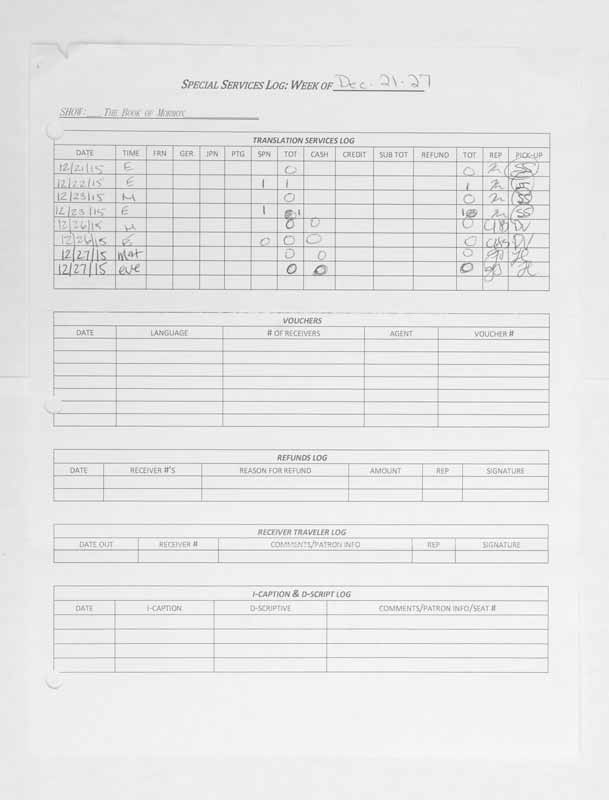 SPECIAL SERVICES LOG: WEEK OF Dec. 21-27
SHOW: THE BOOK OF MORMON
TRANSLATION SERVICES LOG
DATE TIME FRN GER JPN PTG SPN TOT CASH CREDIT SUB TOT REFUND TOT REP PICK-UP
12/21/15 E 0 0 SS
12/22/15 E 1 1 1
12/23/15 M 0 0 SS
12/23/15 E 1 1 1 SS
12/26/15 M 0 0 0 DV
12/26/15 E 0 0 0 0 DV
12/27/15 mat 0 0 0
12/27/15 eve 0 0 0
VOUCHERS
DATE LANGUAGE # OF RECEIVERS AGENT VOUCHER #
REFUNDS LOG
DATE RECEIVER #'S REASON FOR REFUND AMOUNT REP SIGNATURE
RECEIVER TRAVELER LOG
DATE OUT RECEIVER # COMMENTS/PATRON INFO REP SIGNATURE
I-CAPTION & D-SCRIPT LOG
DATE I-CAPTION D-SCRIPTIVE COMMENTS/PATRON INFO/SEAT #